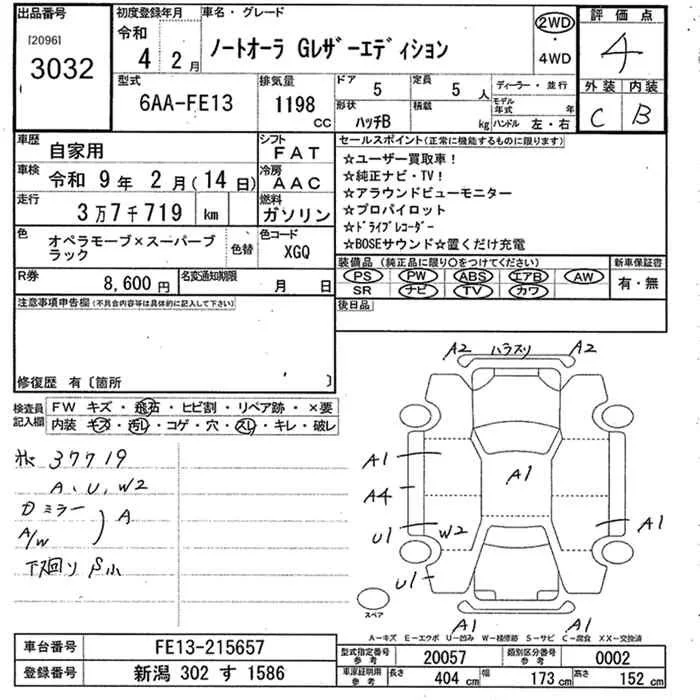 出品番号
[2096]
3032
初度登録年月
令和
4 2月
車名・グレード
ノートオーラ Gレザーエディション
2WD
・
4WD
評価点
4
外装 内装
C B
型式
6AA-FE13
排気量
1198
CC
ドア
5
定員
5 人
形状
ハッチB
積載
kg
ディーラー・並行
モデル年式 年
ハンドル 左・右
車歴
自家用
シフト
FAT
車検
令和 9年 2月(14日)
冷房
AAC
走行
3万7千719 km
燃料
ガソリン
色
オペラモーブ×スーパーブラック
色替
色コード
XGQ
R券
8,600円
名変通知期限
月 日
セールスポイント(正常に機能するものに限ります)
☆ユーザー買取車!
☆純正ナビ・TV!
☆アラウンドビューモニター
☆プロパイロット
☆ドライブレコーダー
☆BOSEサウンド☆置くだけ充電
装備品(純正品に限り○をつけてください)
PS PW ABS エアB AW
SR ナビ TV カワ
新車保証書
有・無
後日品
注意事項申告欄(不具合内容等は具体的に記入して下さい)
修復歴 有〔箇所 〕
検査員記入欄
FW キズ・飛石・ヒビ割・リペア跡・×要
内装 キズ・汚レ・コゲ・穴・スレ・キレ・破レ
37719
A、U、W2
Dミラー
A/W
) A
下回り S小
A2 ハラスリ A2
A1
A1
A4
U1
W2
A1
U1
A1 A1
スペア
A−キズ E−エクボ U−凹み W−補修跡 S−サビ C−腐食 XX−交換済
車台番号
FE13-215657
登録番号
新潟 302 す 1586
型式指定番号
参考
20057
類別区分番号
参考
0002
車家証明用
参考
長さ
404 cm
幅
173 cm
高さ
152 cm